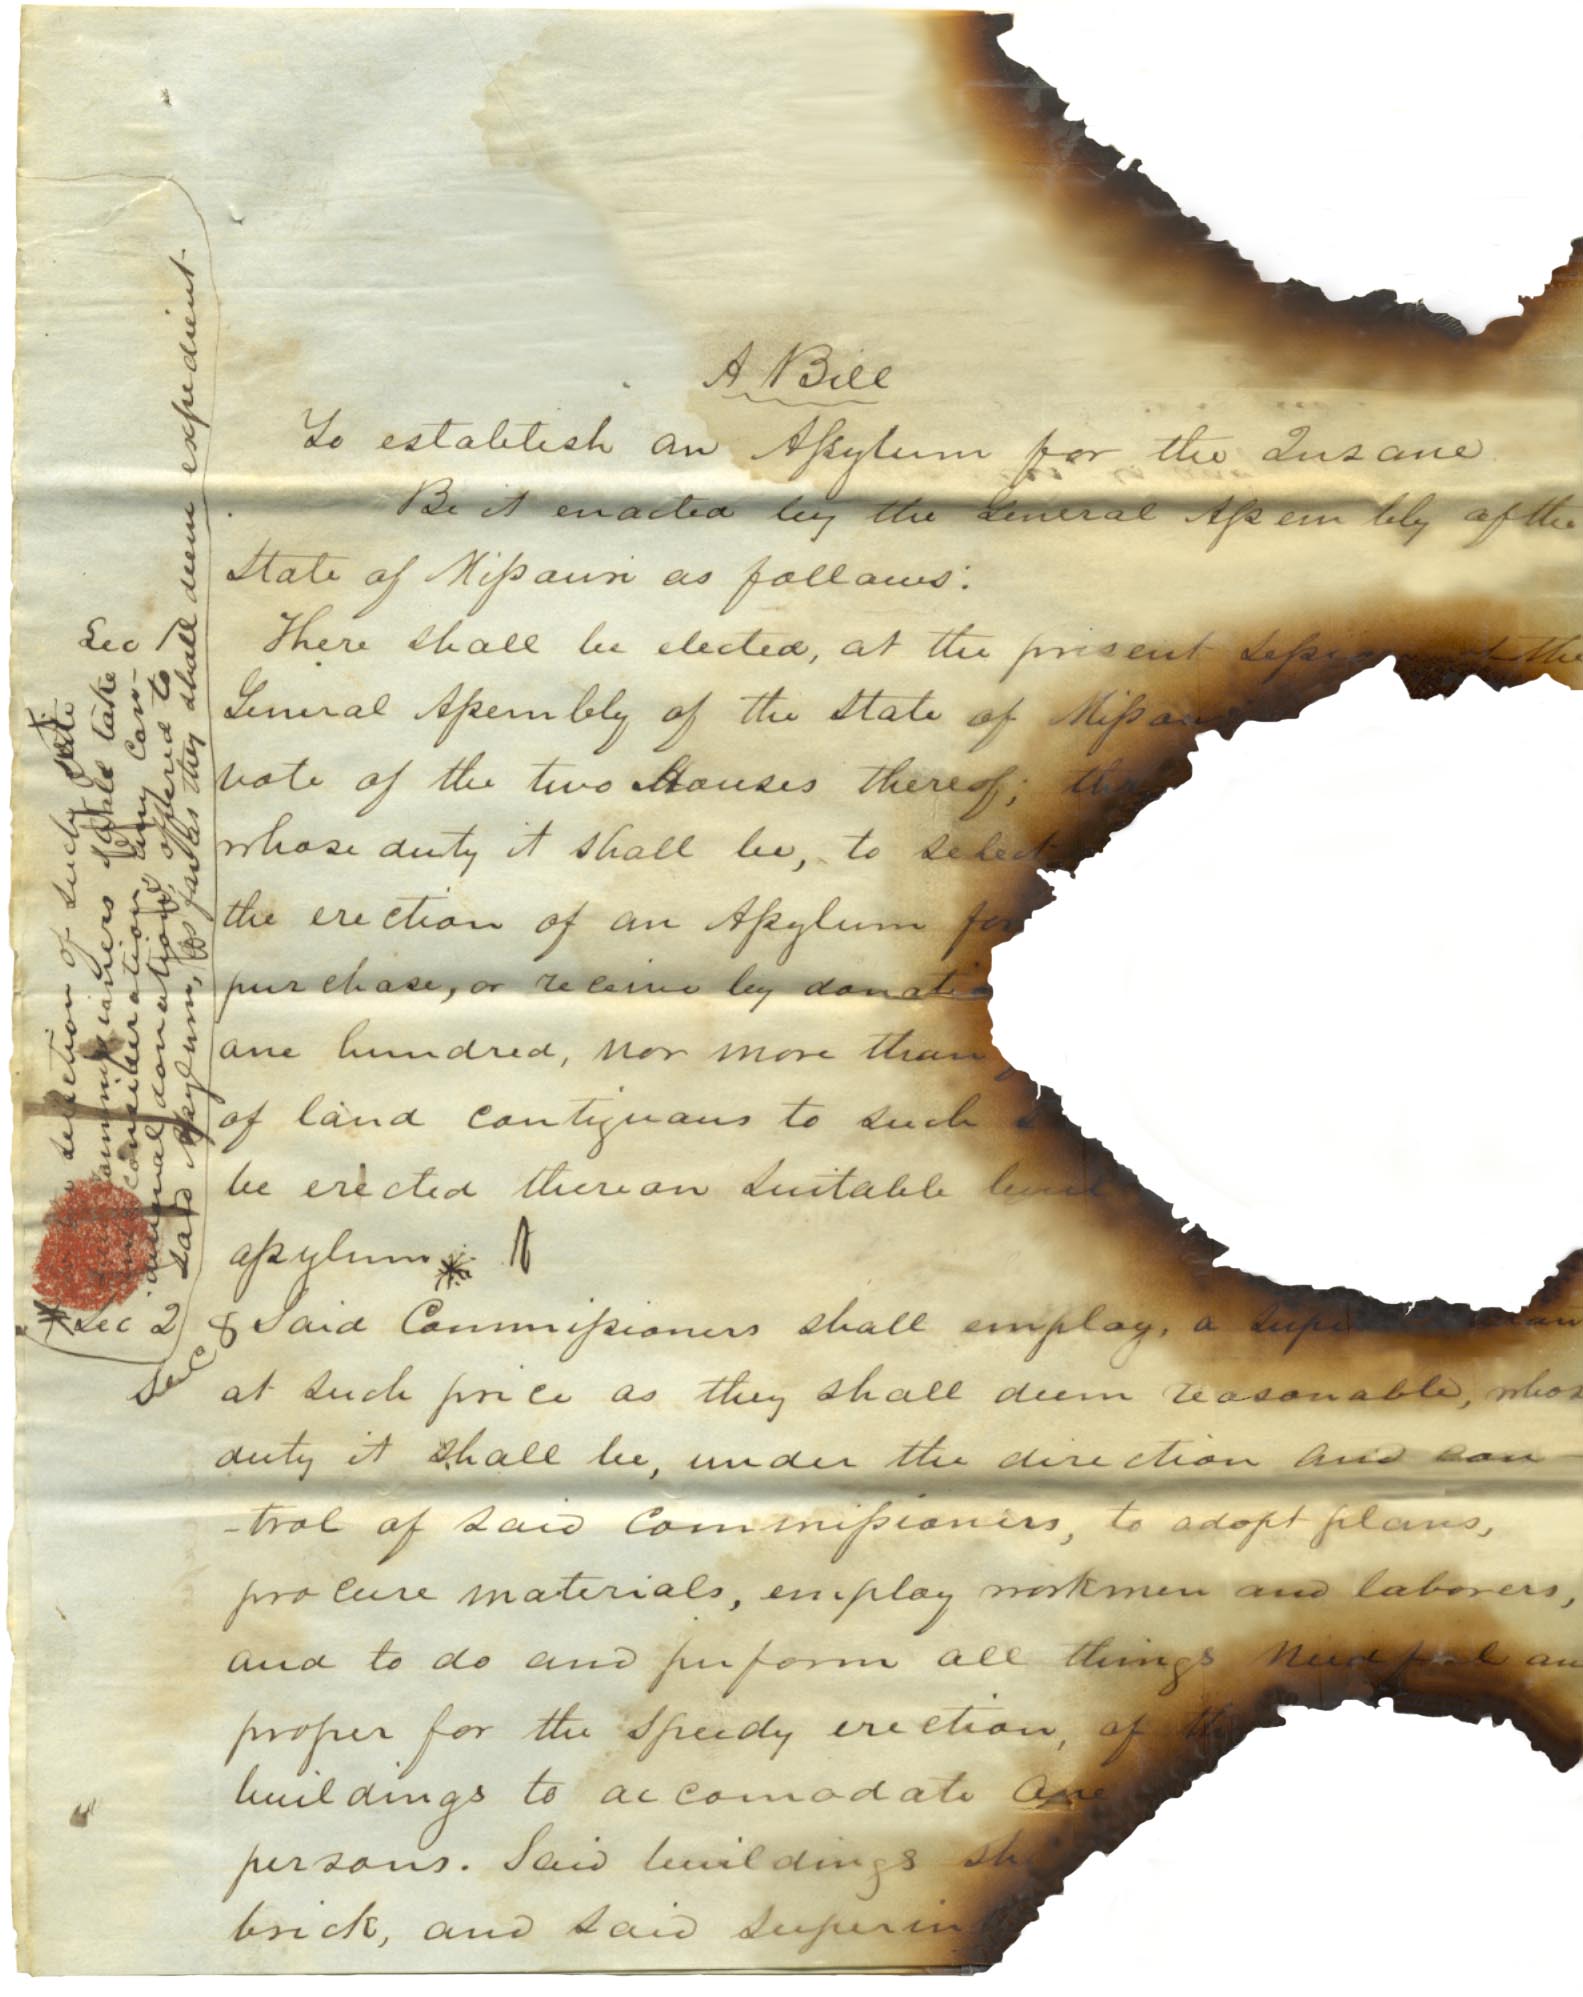 A Bill
To establish an Asylum for the Insane
Be it enacted by the General Assembly of the
State of Missouri as follows:
Sec 1 There shall be elected, at the present session of the
General Assembly of the State of Missou
vote of the two Houses thereof; th
whose duty it shall be, to select
the erection of an Asylum for
purchase, or receive by donatio
one hundred, nor more than
of land contiguous to such
be erected thereon suitable buil
asylum *
* Sec 2 & Said Commissioners shall employ, a supe
Sec at such price as they shall deem reasonable, whos
duty it shall be, under the direction and con
-trol of said Commissioners, to adopt plans,
procure materials, employ workmen and laborers,
and to do and perform all things needful an
proper for the speedy erection, of th
buildings to accomodate one
persons. Said buildings sh
brick, and said superin
selection of such site
Commissioners shall take
consideration any Con-
ditional donations, offered to
said Asylum, as far as they shall deem expedient